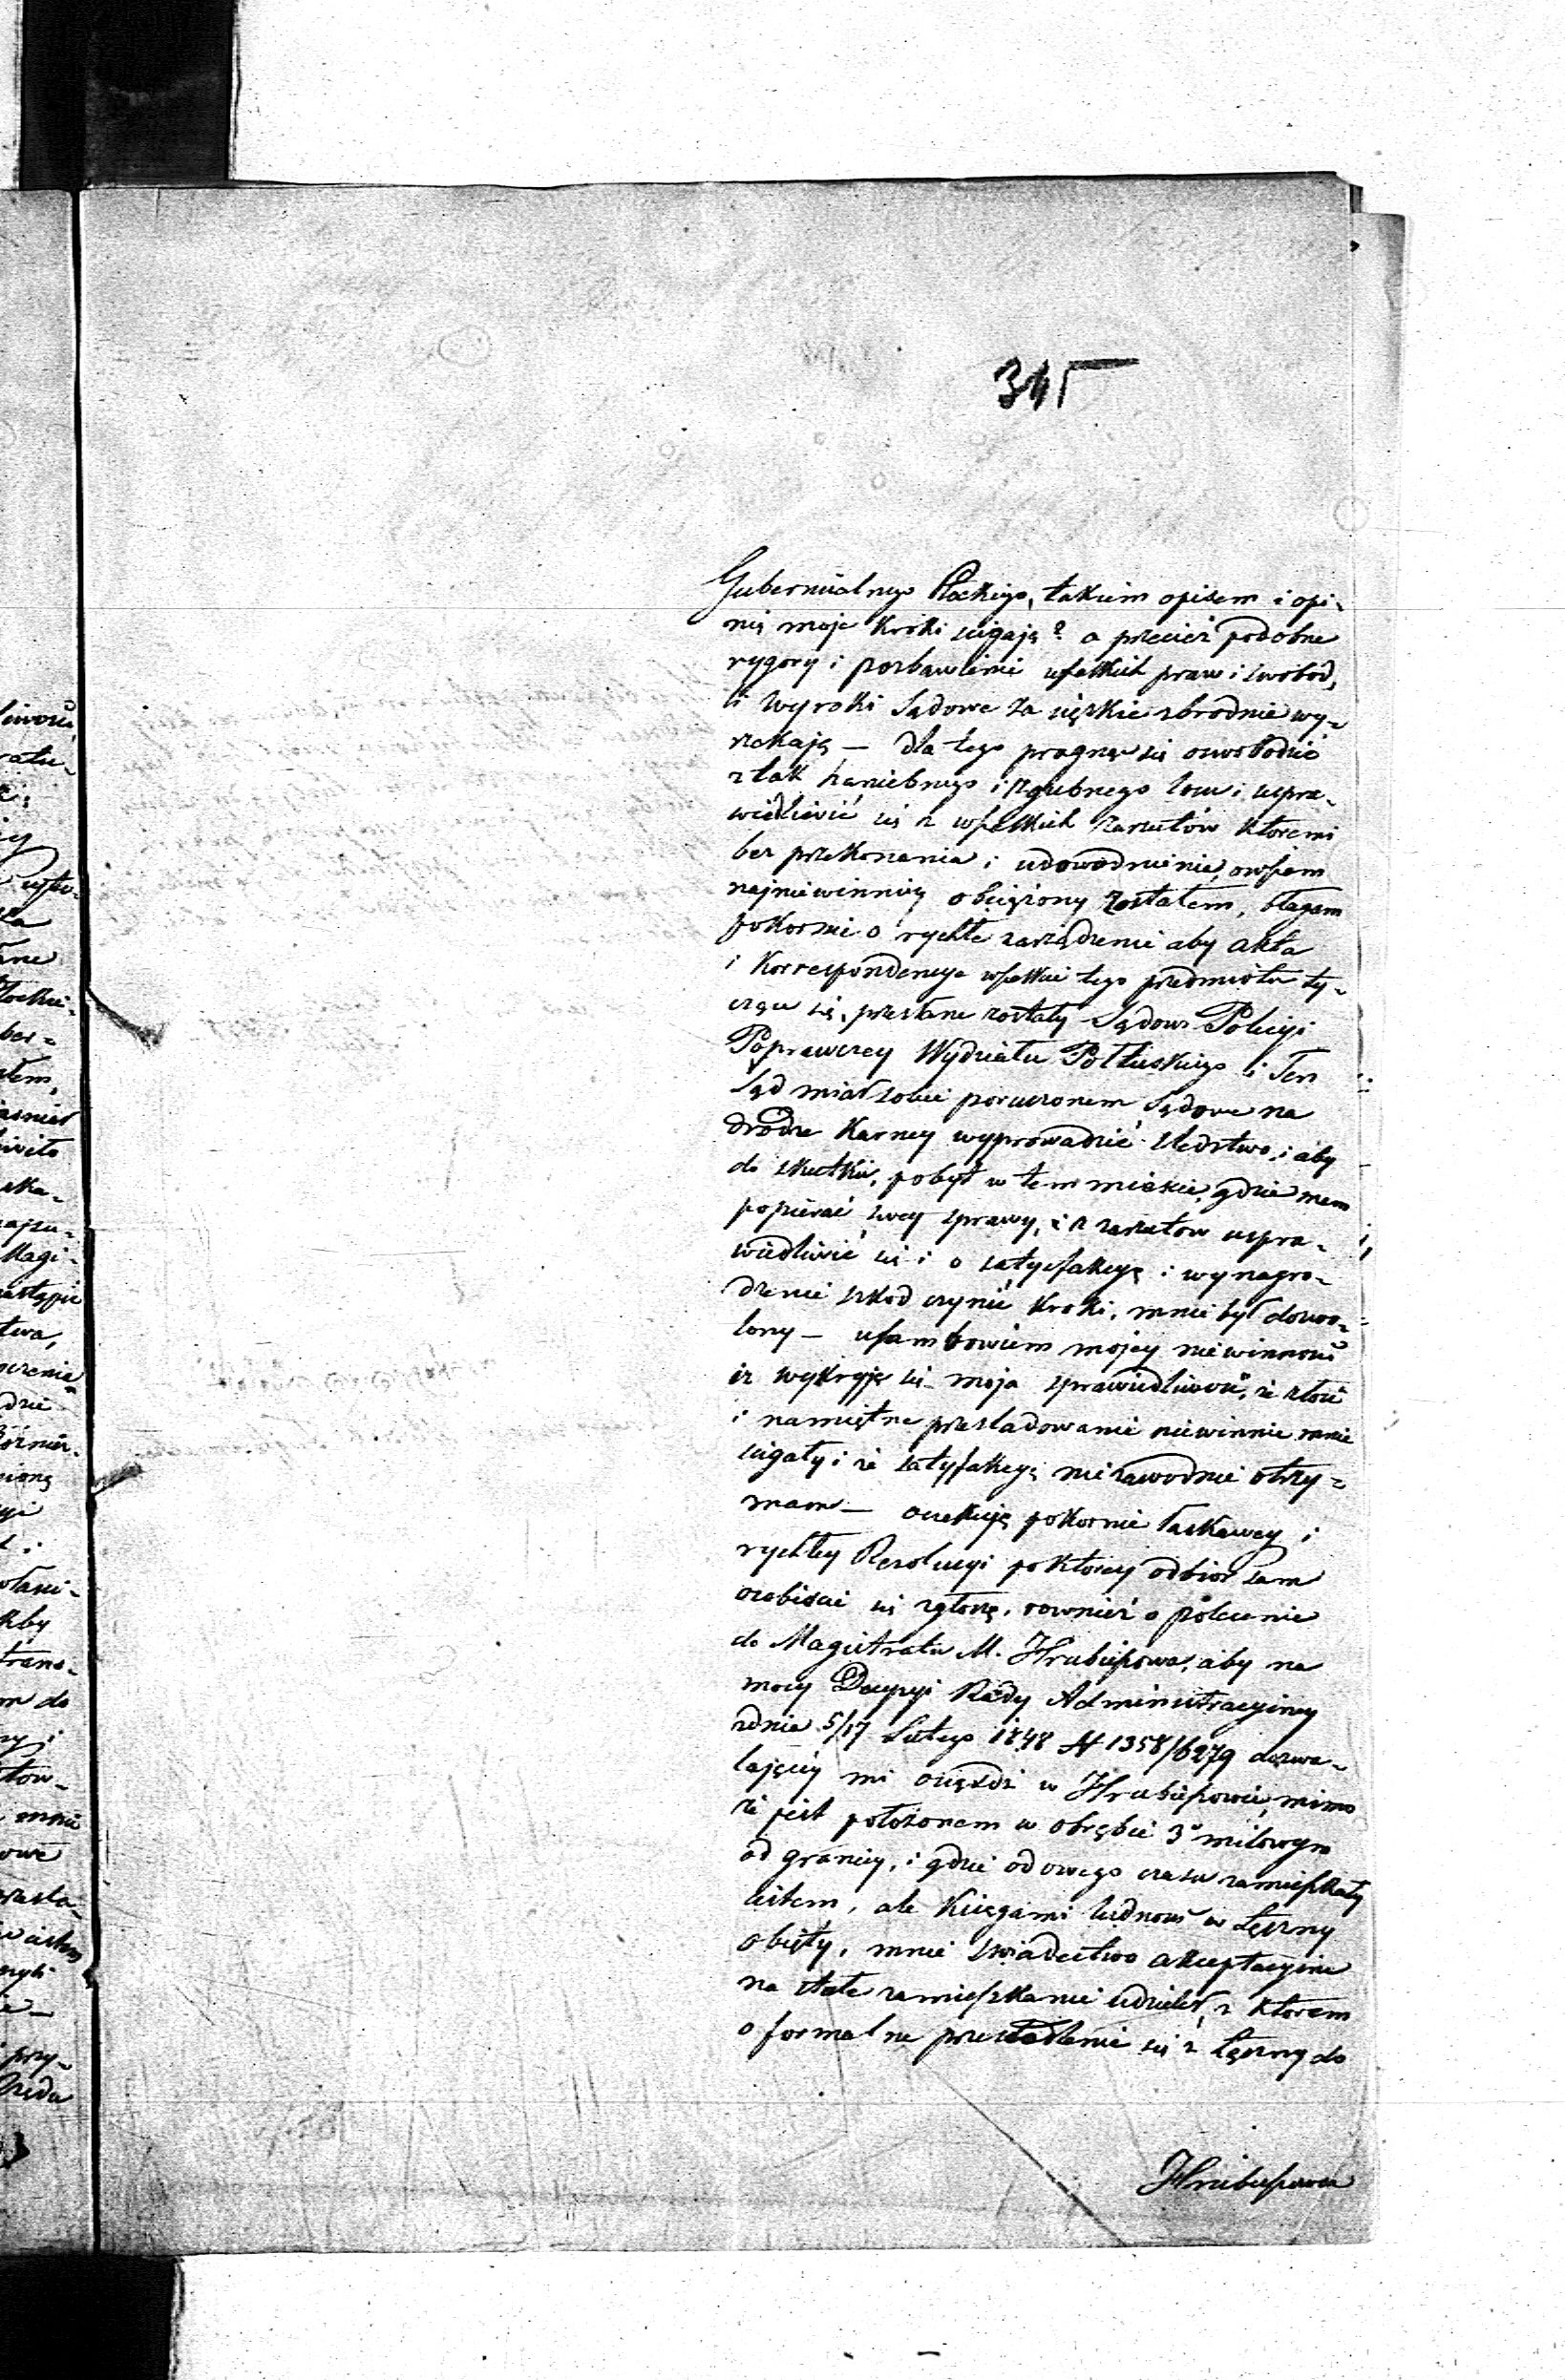 345
Gubernialnego Płockiego, takim opisem i opi-
nią moje kroki ścigają? a przecież podobne
rygory i pozbawienie wszelkich praw i swobod,
li Wyroki Sądowe za ciężkie zbrodnie wy-
rzekają — dla tego pragnąc się oswobodzić
z tak haniebnego i zgubnego losu i uspra-
wiedliwić się z wszelkich zarzutów któremi
bez przekonania i udowodnienia, owszem
najniewinniej obciążony zostałem, błagam
pokornie o rychłe zarządzenie aby akta
i Korrespondencye wszelkie tego przedmiotu ty-
czące się, przesłane zostały Sądowi Policyi
Poprawczey Wydziału Pułtuskiego i Ten
Sąd miał sobie poruczonem Sądowe na
drodze Karney wyprowadzić śledztwo, i aby
do skutku, pobyt w tem mieście, gdzie mam
popierać swey sprawy, i z zarzutow uspra-
wiedliwić się i o satysfakcyą i wynagro-
dzenie szkod czynić kroki, mnie był dozwo-
lony — ufam bowiem mojey niewinności
iż wykryje się moja sprawiedliwość, że złość
i namiętne prześladowanie niewinnie mnie
ścigały i że satysfakcyą niezawodnie otrzy-
mam — oczekuję pokornie łaskawey i
rychłey Rezolucyi po którey odbior sam
osobiście się zgłoszę, rownież o polecenie
do Magistratu M. Hrubieszowa, aby na
mocy Decyzyi Rady Administracyiney
z dnia 5/17 Lutego 1848 N 1358/6279 dozwa-
lającey mi osiąść w Hrubieszowie, mimo
że jest położonem w obrębie 3 milowym
od granicy, i gdzie od owego czasu zamieszkały
jestem, ale Księgami ludności w Łęczny
objęty, mnie świadectwo akceptacyine
na stałe zamieszkanie udzielił, z którem
o formalne przesiedlenie się z Łęczny do
Hrubieszowa